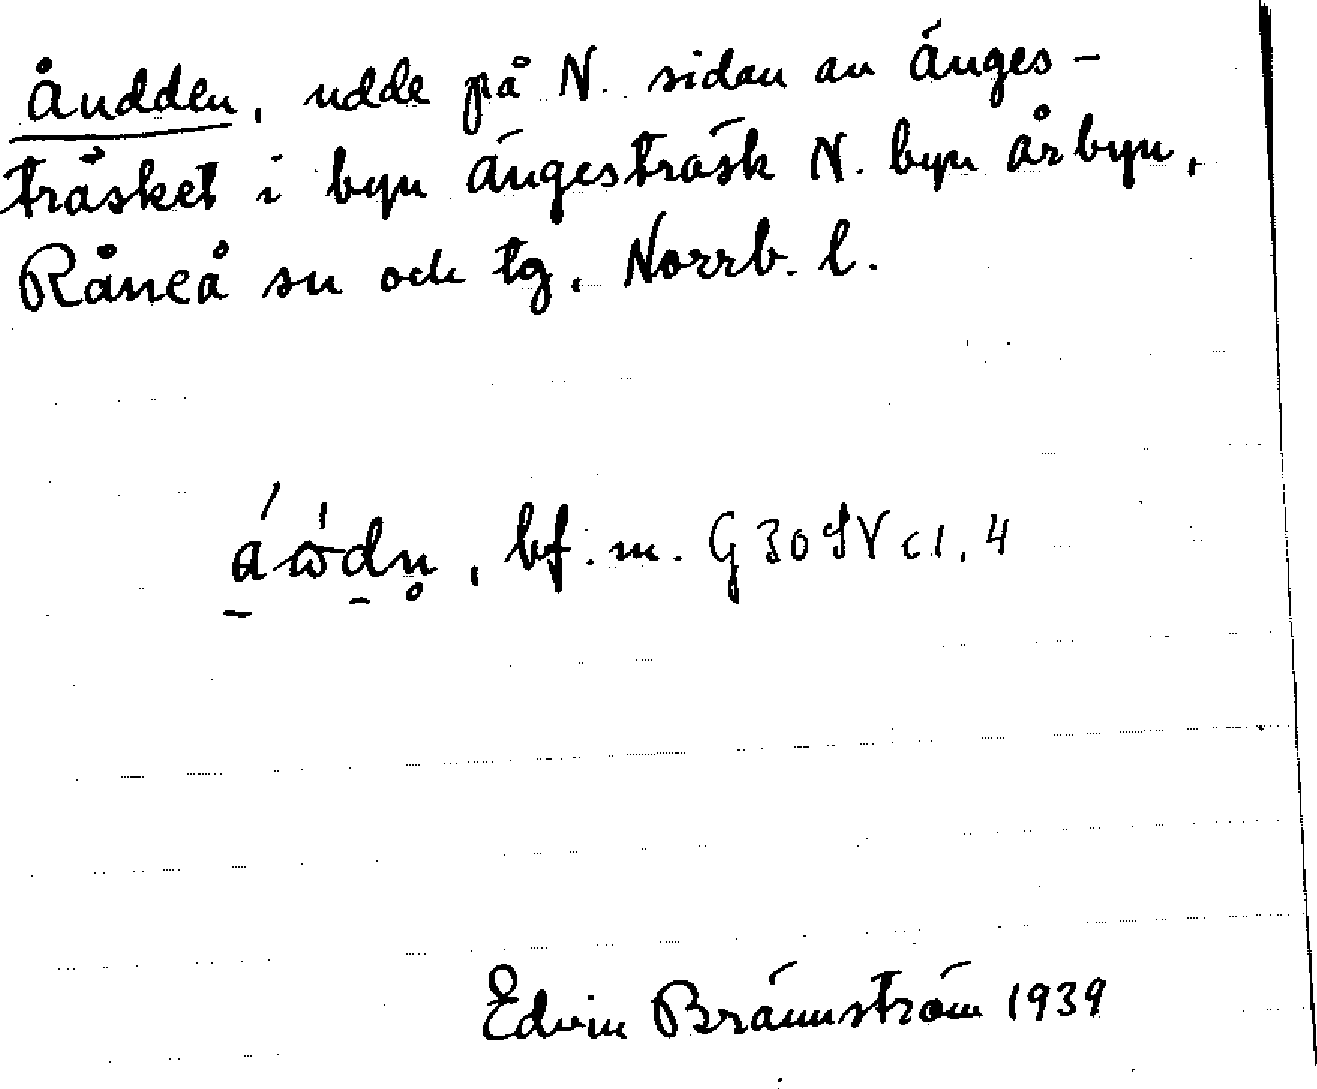 Åudden, udde på N. sidan av Änges-
träsket i byn Ängesträsk N. byn Årbyn,
Råneå sn och tg. Norrb. l.
bf. m. G 30 SV c 1, 4
Edvin Brännström 1939